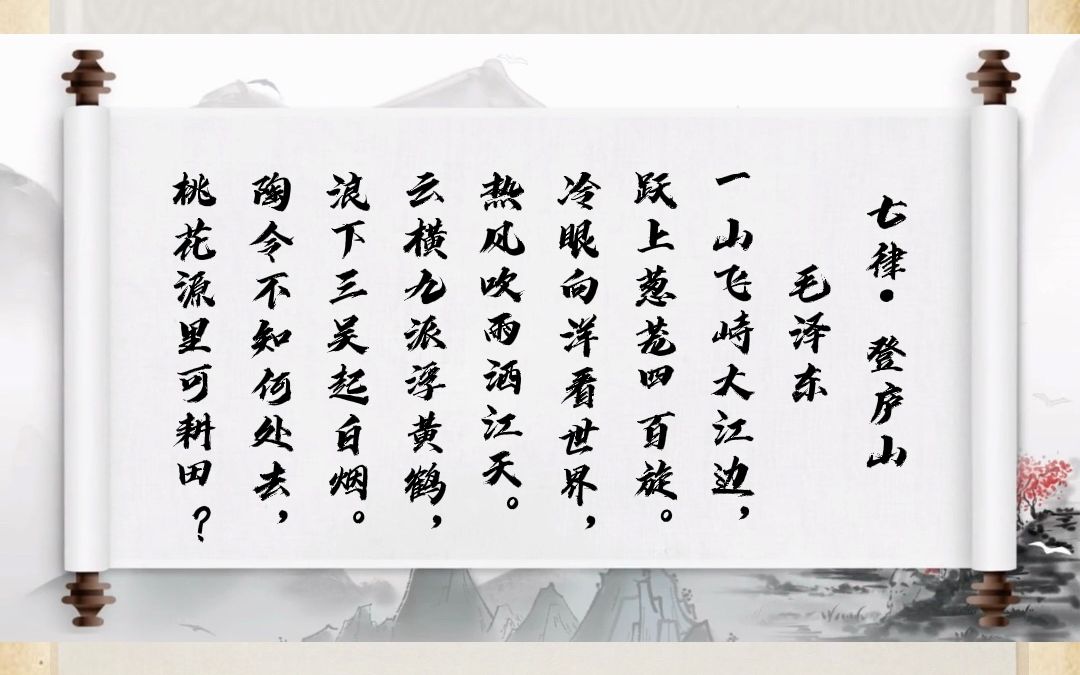 七律·登庐山
毛泽东
一山飞峙大江边，
跃上葱茏四百旋。
冷眼向洋看世界，
热风吹雨洒江天。
云横九派浮黄鹤，
浪下三吴起白烟。
陶令不知何处去，
桃花源里可耕田？